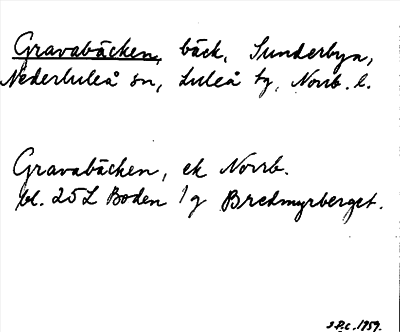 Gravabäcken, bäck, Sunderbyn,
Nederluleå sn, Luleå tg, Norrb. l.
Gravabäcken, ek Norrb.
bl. 25L Boden 1 g Bredmyrberget.
1959.